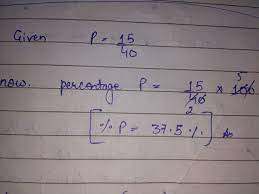 Given P = 15/40
now. percentage P = 15/40 2 × 100 5
[% P = 37.5 %] As